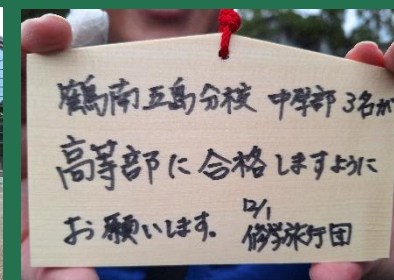 鶴南五島分校 中学部 3名が
高等部に合格しますように
お願いします。 12/1
修学旅行団